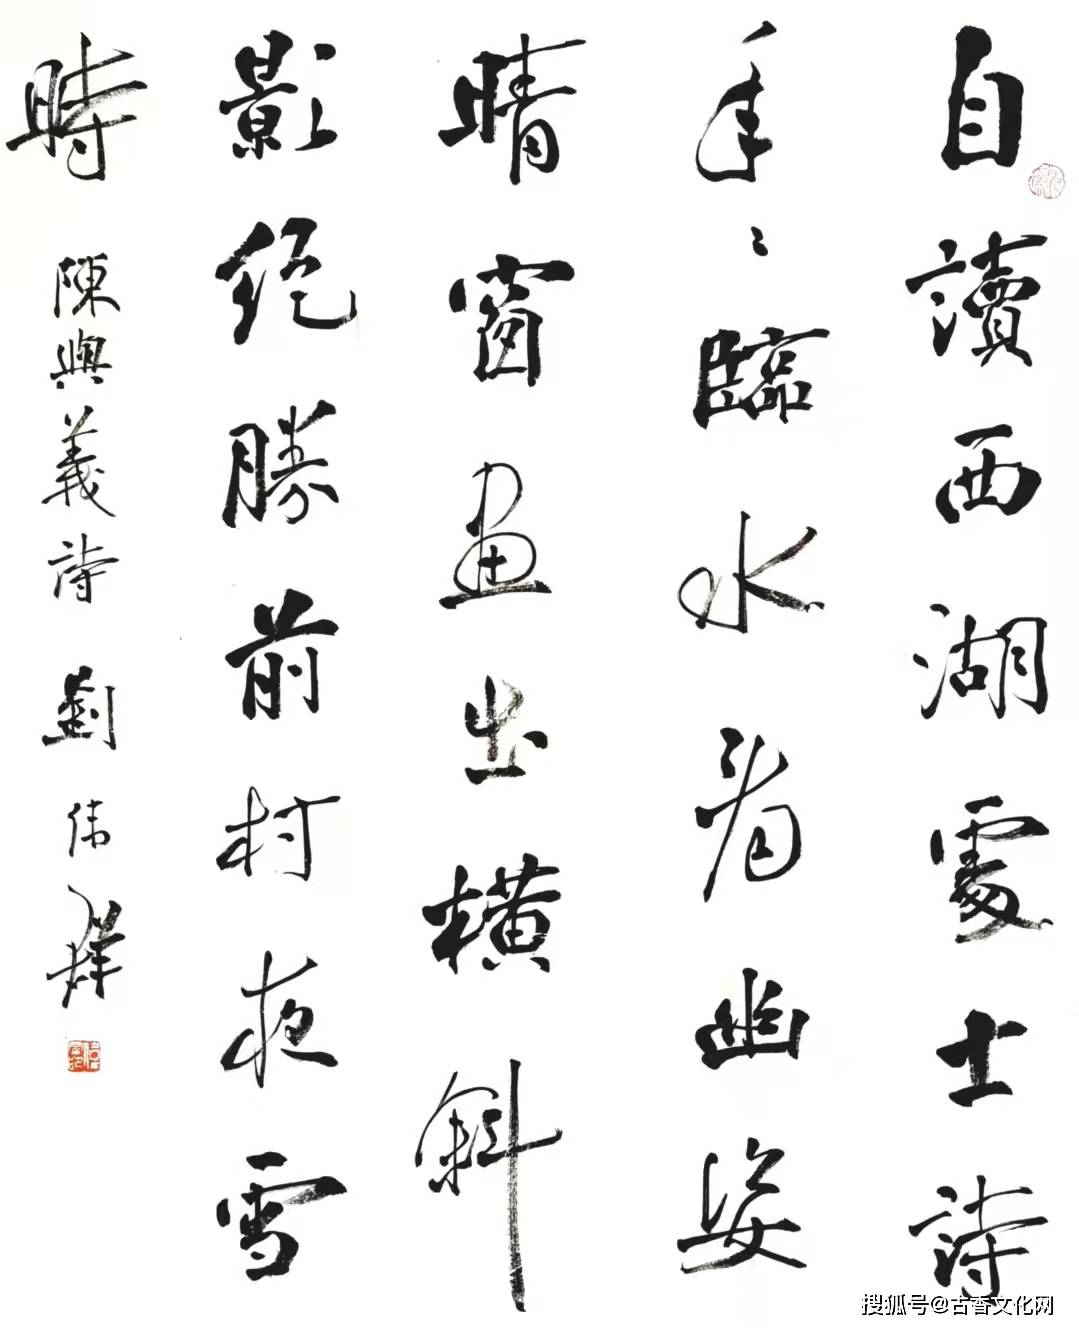 自讀西湖處士詩
年々臨水看幽姿
晴窗画出橫斜
影絕勝前村夜雪
時 陳與義詩 劉伟
搜狐号@古香文化网